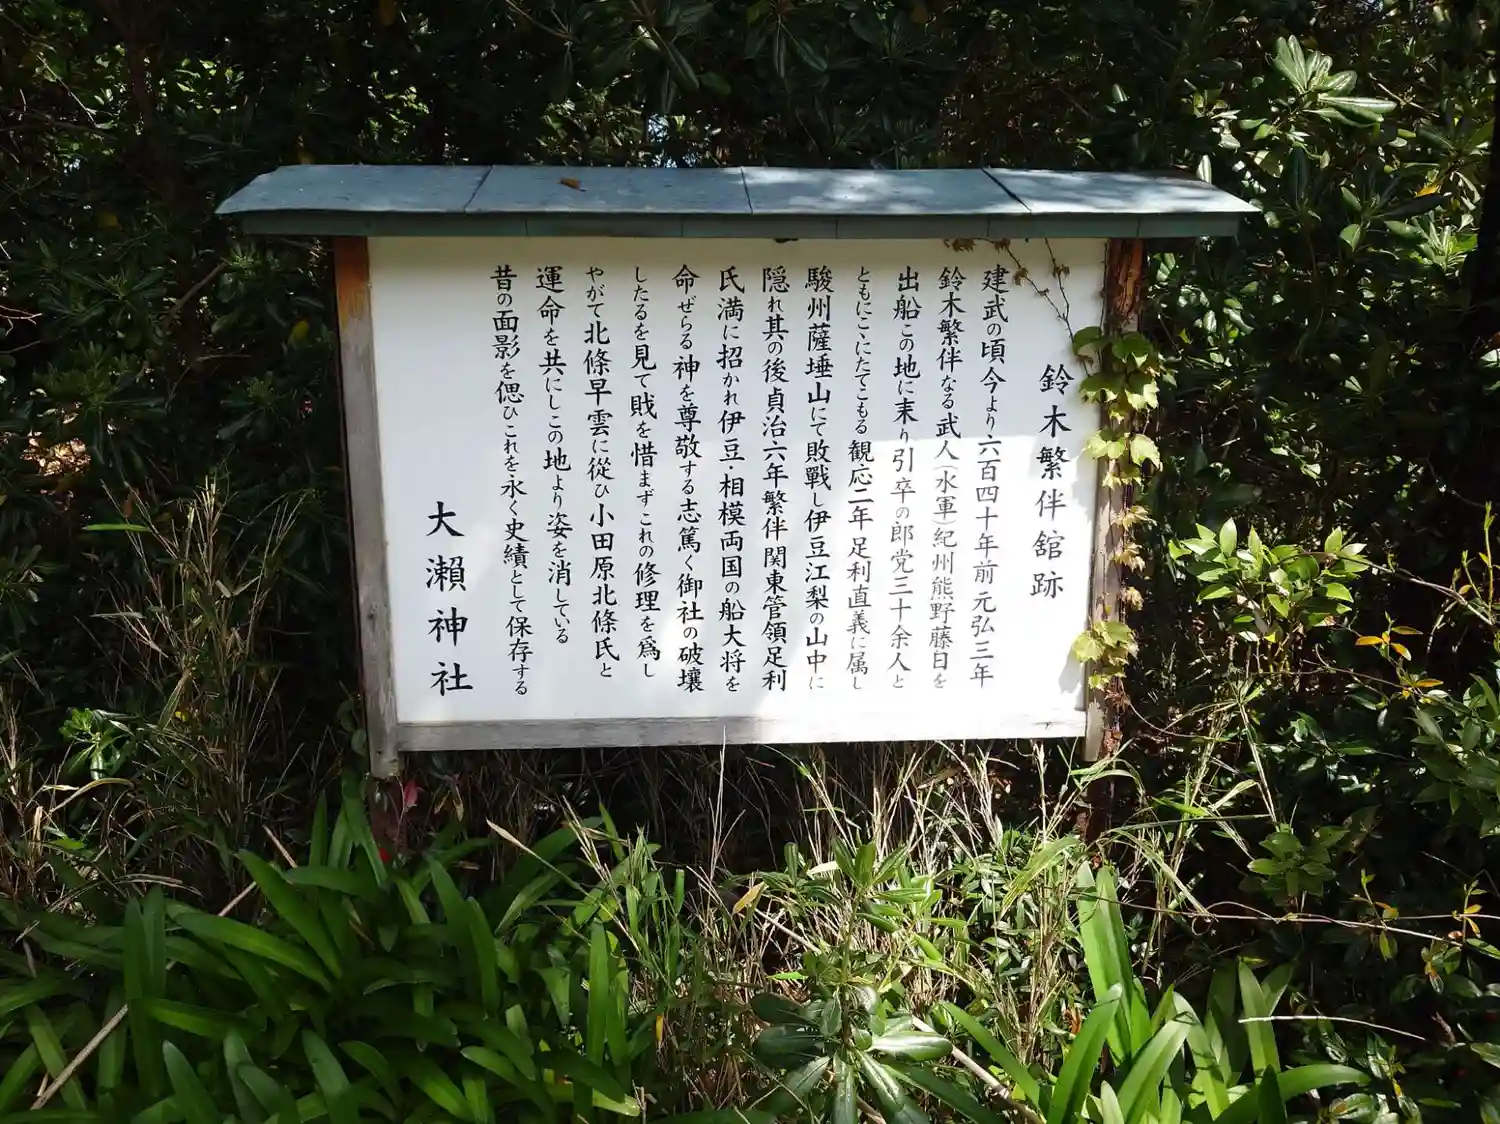 鈴木繁伴舘跡
建武の頃今より六百四十年前元弘三年
鈴木繁伴なる武人(水軍)紀州熊野藤日を
出船この地に来り引卒の郎党三十余人と
ともにこゝにたてこもる観応二年足利直義に属し
駿州薩埵山にて敗戦し伊豆江梨の山中に
隠れ其の後貞治六年繁伴関東管領足利
氏満に招かれ伊豆・相模両国の船大将を
命ぜらる神を尊敬する志篤く御社の破壊
したるを見て戝を惜まずこれの修理を爲し
やがて北條早雲に從ひ小田原北條氏と
運命を共にしこの地より姿を消している
昔の面影を偲ひこれを永く史績として保存する
大瀬神社